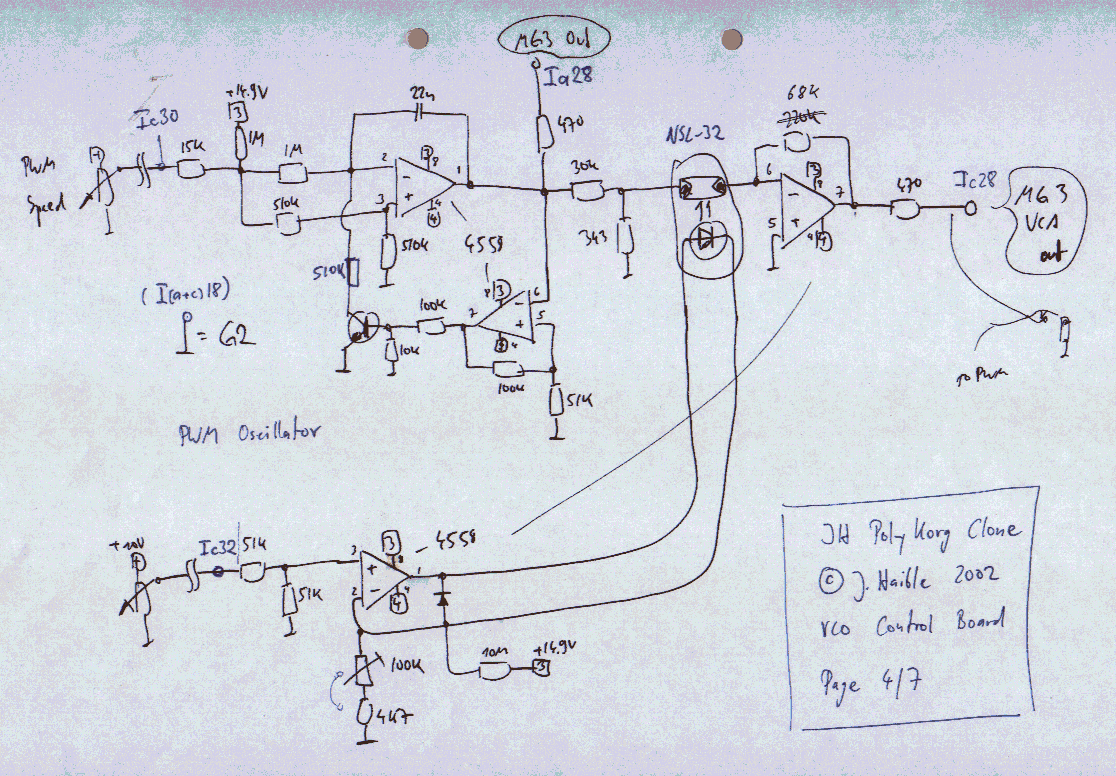 MG3 Out
Ia28
+14.9V
3
Ic30
1M
PWM
Speed
15K
1M
510K
22n
2
3
8
4
4
1
510K
4558
470
30k
343
NSL-32
68K
220k
6
5
3
4
7
470
Ic28
MG3
VCA
out
to PWM
510K
(I(a+c)18)
= G2
100k
10k
3
8
6
5
4
100k
51K
PWM Oscillator
+10V
Ic32
51K
51K
3
2
3
8
4
4
1
4558
100K
4K7
10M
+14.9V
3
JH PolyKorg Clone
© J. Haible 2002
VCO Control Board
Page 4/7